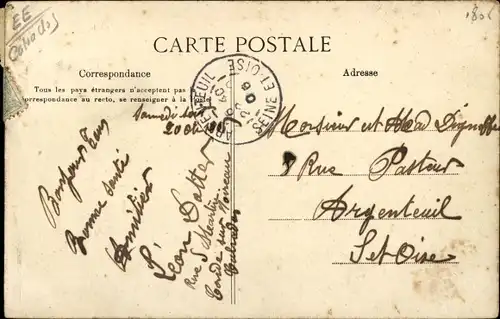 EE
Calvados
1808
CARTE POSTALE
Correspondance
Adresse
Tous les pays étrangers n'acceptent pas la
correspondance au recto, se renseigner à la Poste
ARGENTEUIL
SEINE-ET-OISE
Samedi soir
20 oct
Bonjour Tous
Bonne santé
Amitiés
Léon
Rue St Martin
Condé sur Noireau
Calvados
Monsieur et Mad
8 Rue Pasteur
Argenteuil
S et Oise